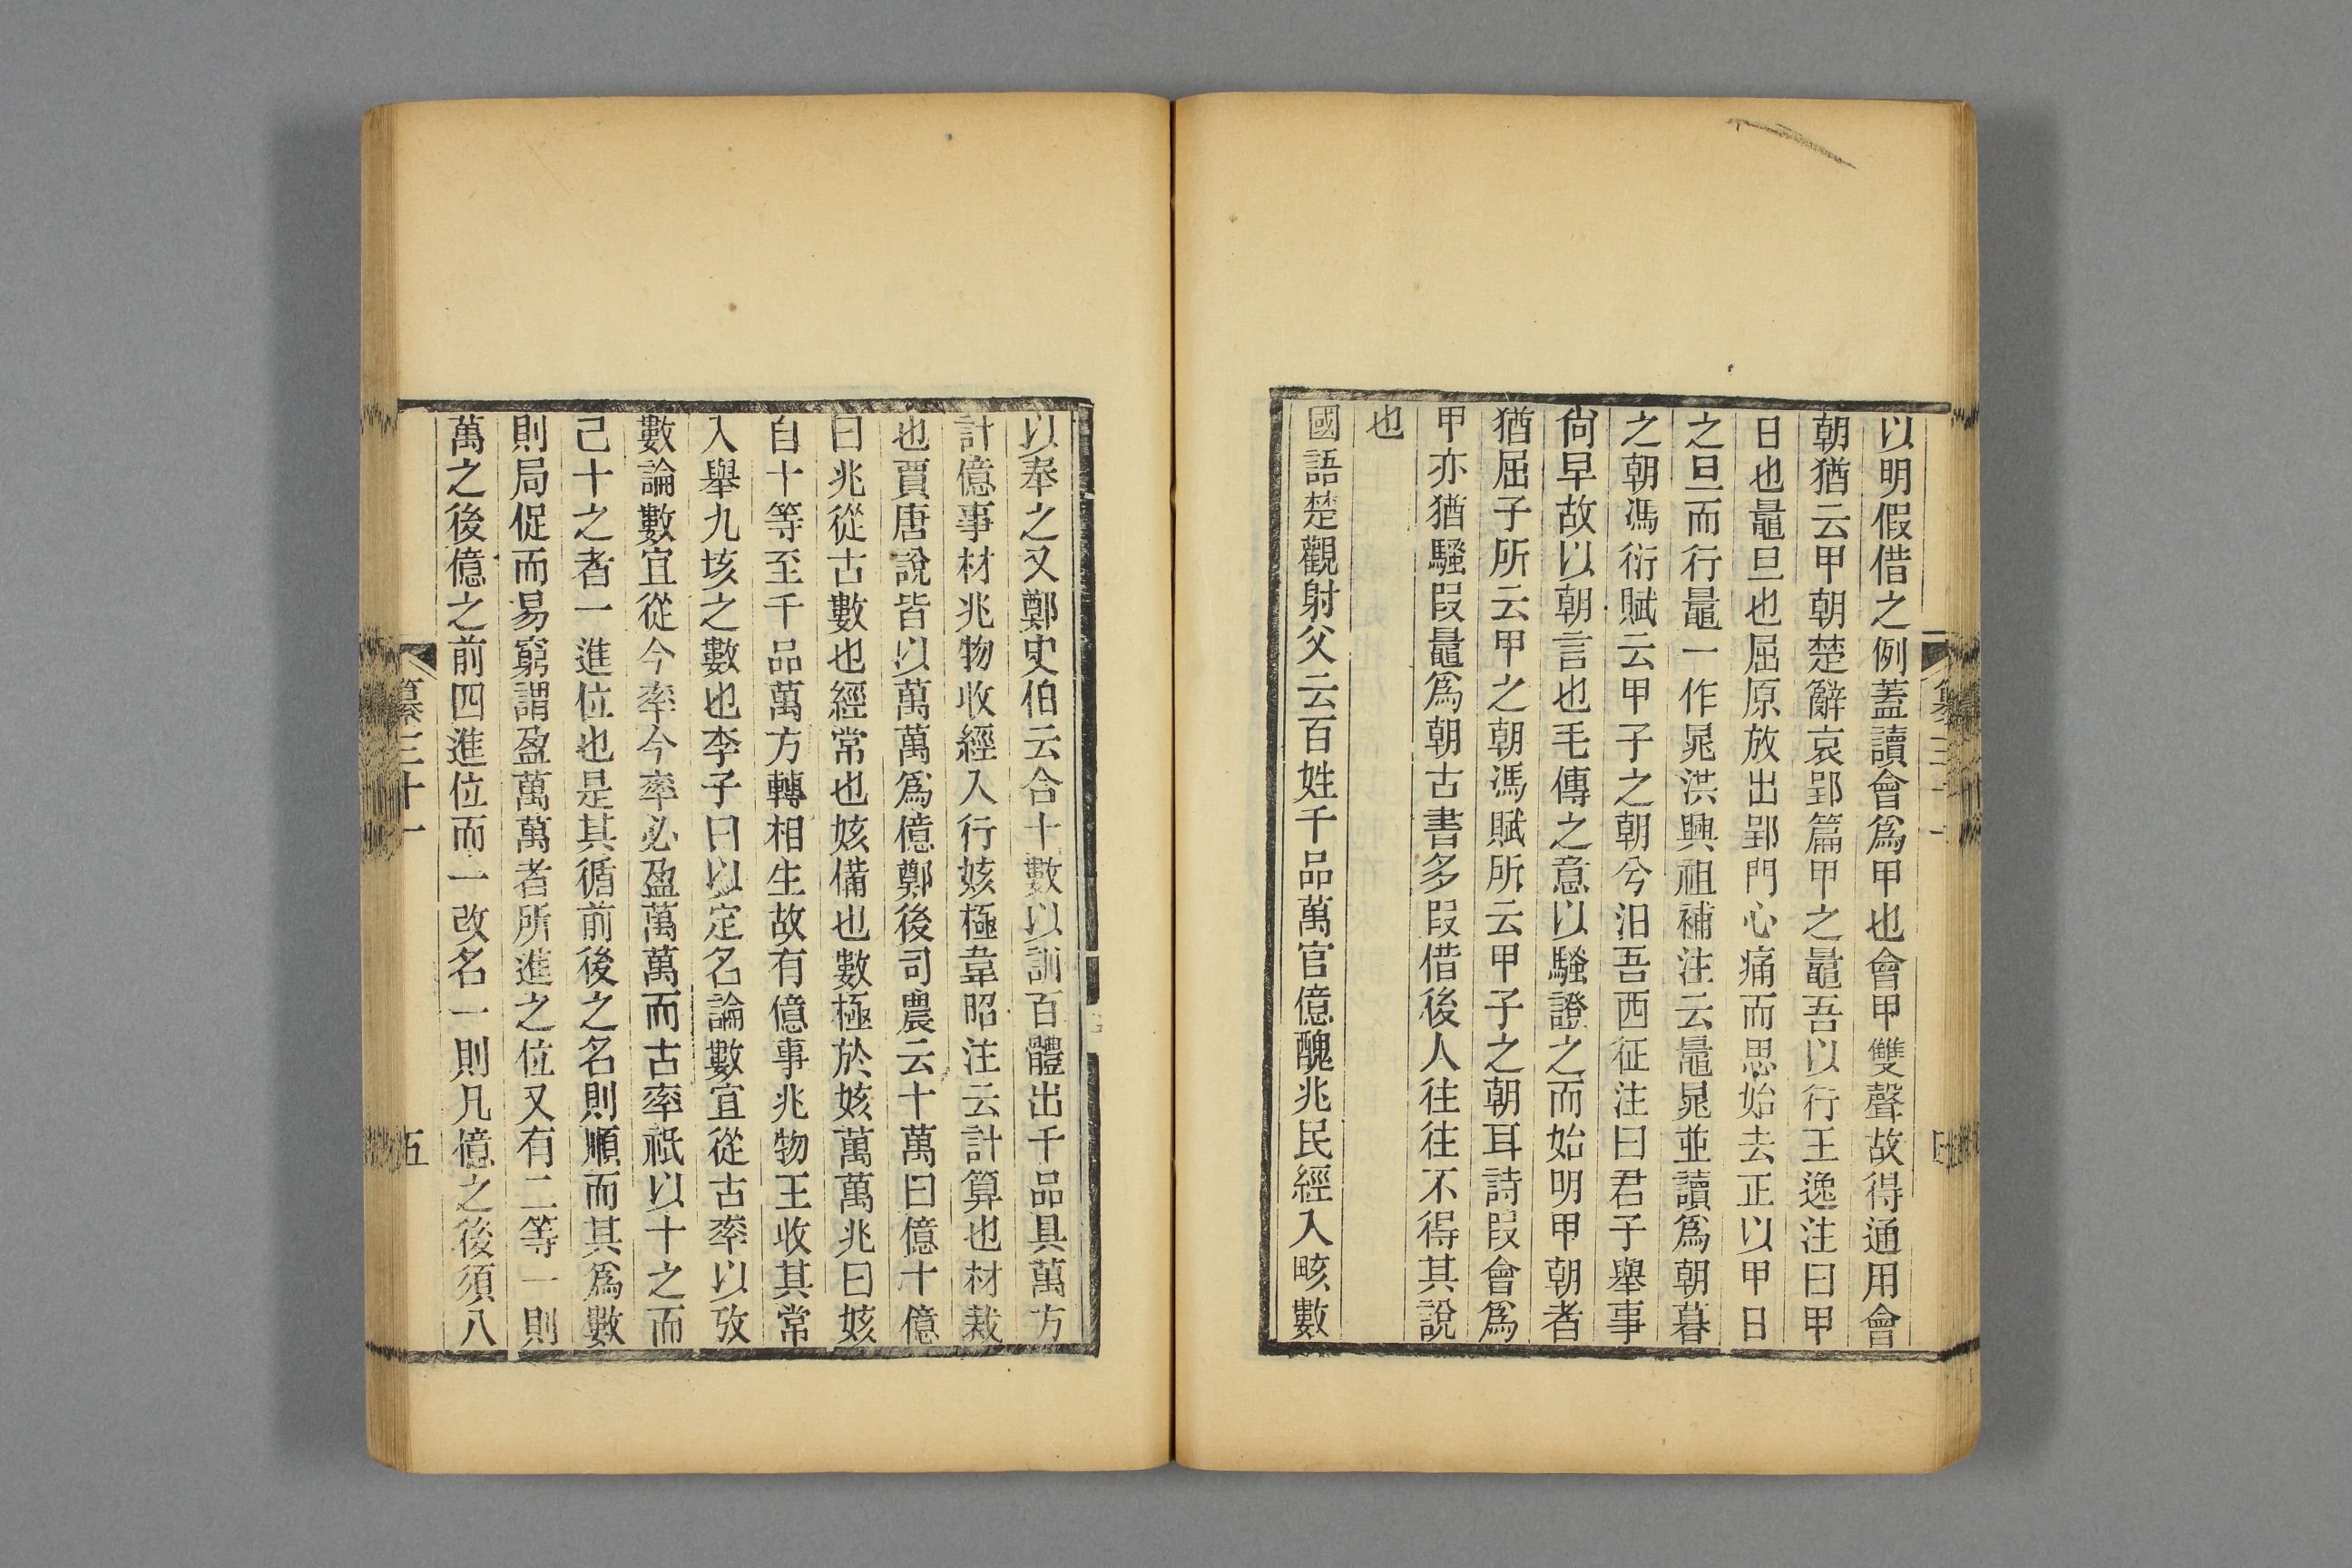 以明假借之例蓋讀會爲甲也會甲雙聲故得通用會
朝猶云甲朝楚辭哀郢篇甲之鼂吾以行王逸注曰甲
日也鼂旦也屈原放出郢門心痛而思始去正以甲日
之旦而行鼂一作鼌洪興祖補注云鼂鼌並讀爲朝暮
之朝馮衍賦云甲子之朝兮汨吾西征注曰君子舉事
尙早故以朝言也毛傳之意以騷證之而始明甲朝者
猶屈子所云甲之朝馮賦所云甲子之朝耳詩叚會爲
甲亦猶騷叚鼂爲朝古書多叚借後人往往不得其說
也
國語楚觀射父云百姓千品萬官億醜兆民經入畡數
以奉之又鄭史伯云合十數以訓百體出千品具萬方
計億事材兆物收經入行姟極韋昭注云計算也材裁
也賈唐說皆以萬萬爲億鄭後司農云十萬曰億十億
曰兆從古數也經常也姟備也數極於姟萬萬兆曰姟
自十等至千品萬方轉相生故有億事兆物王收其常
入舉九垓之數也李子曰以定名論數宜從古率以攷
數論數宜從今率今率必盈萬萬而古率祇以十之而
己十之者一進位也是其循前後之名則順而其爲數
則局促而易窮謂盈萬萬者所進之位又有二等一則
萬之後億之前四進位而一改名一則凡億之後須八
纂三十一
五